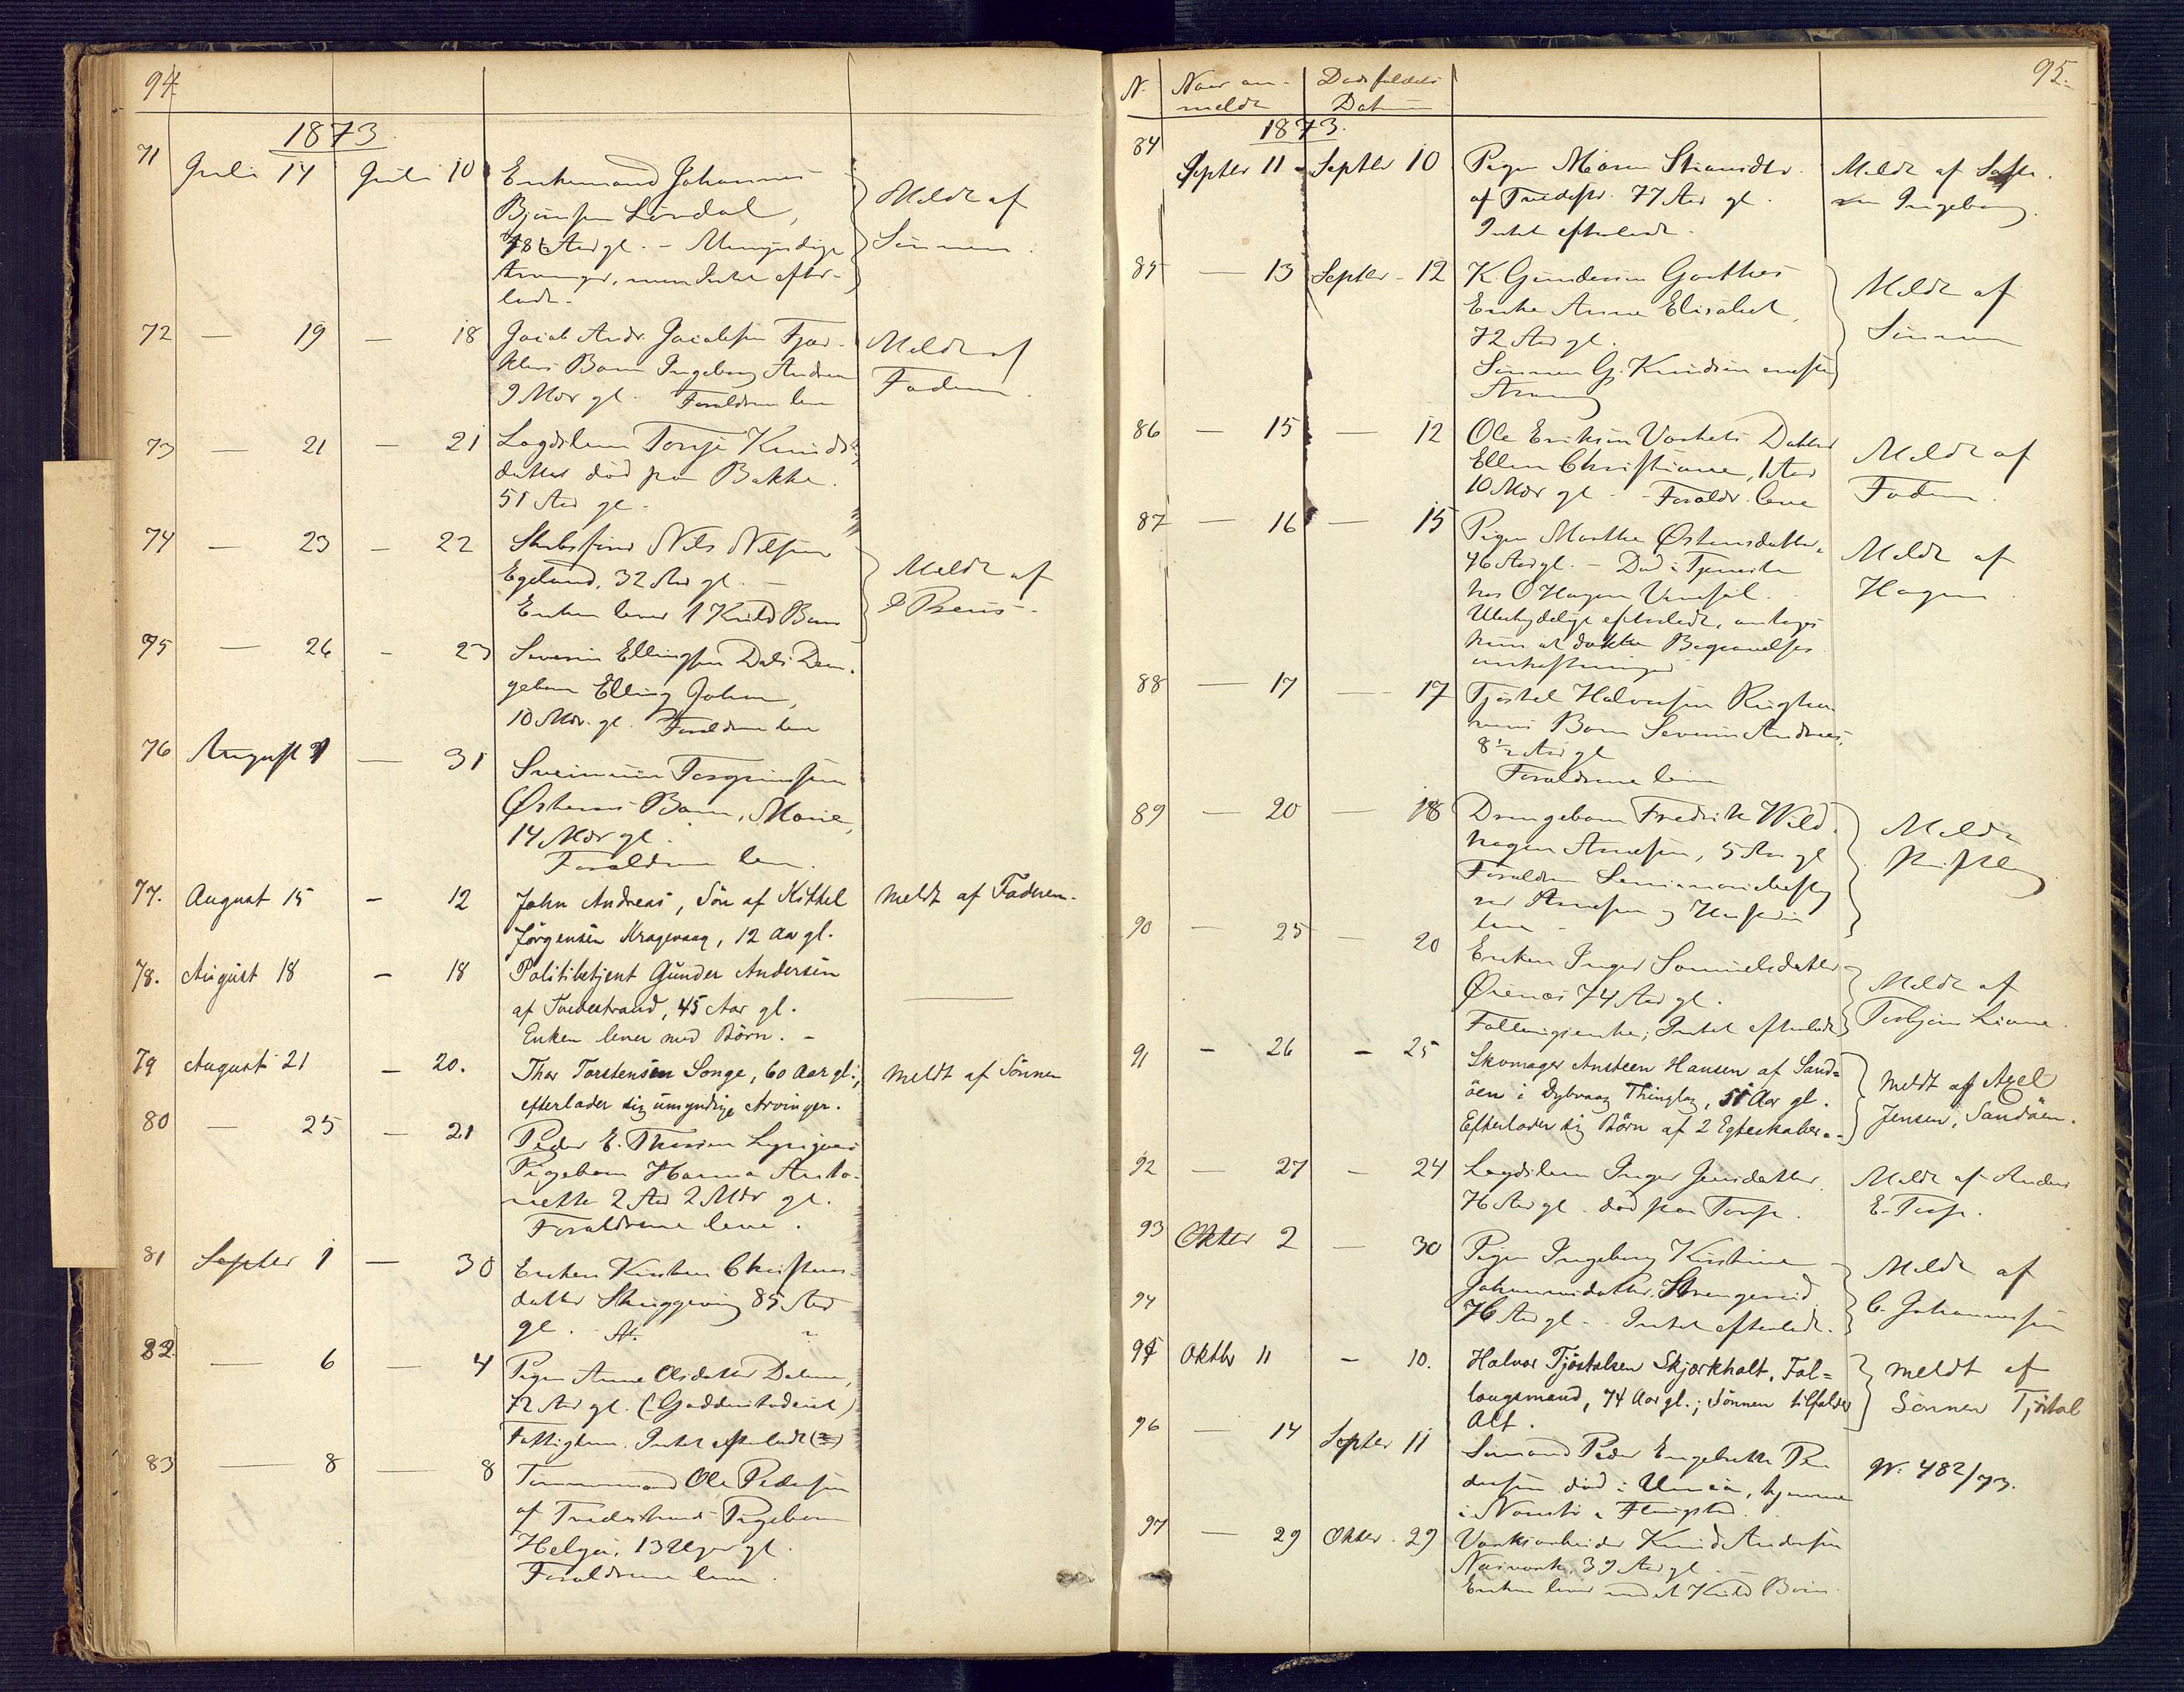 94.
1873.
71 Juli 14 Juli 10 Enkemand Johannes
Bjørnsen Løvdal,
78 Aar gl. – Umyndige
Arvinger, men Intet efter-
ladt.
Meldt af
Sønnen.
72 — 19 — 18 Jacob Andr. Jacobsen
Barn Ingeborg Andrea
9 Mdr gl. Forældrene leve
Meldt af
Faderen.
73 — 21 — 21 Lægdslem Torje Knuds-
datter død paa Bakke.
51 Aar gl.
74 — 23 — 22 Skibsfører Nils Nilsen
Egeland, 32 Aar gl. –
Enken lever 1 Kuld Børn
Meldt af
75 — 26 – 23 Severin Ellingsen Dals Dren-
gebarn Elling Johan,
10 Mdr. gl. Forældrene leve
76 August 1 — 31 Torgrimsen
Østerøs Barn, Marie,
14 Mdr gl.
Forældrene leve.
77. August 15 – 12 John Andreas, Søn af Kittel
Jørgensen Kragevaag, 12 Aar gl.
Meldt af Faderen.
78. August 18 – 18 Politibetjent Gunder Andersen
af Tvedestrand, 45 Aar gl.
Enken lever med Børn. –
79 August 21 – 20. Thor Torstensen Songe, 60 Aar gl.,
efterlader sig umyndige Arvinger.
Meldt af Sønnen
80 — 25 – 21 Peder E. Thorsen
Pigebarn Hanna Anto-
nette 2 Aar 2 Mdr gl.
Forældrene leve.
81 Septbr 1 — 30 Enken Kirsten Christens-
datter 85 Aar
gl.
82. — 6 — 4 Pigen Anne Olsdatter Dalene,
72 Aar gl.
Fattiglem. Intet efterladt
83 — 8 — 8 Tømmermand Ole Pedersen
af Tvedestrands Pigebarn
Helga, 13 Uger gl.
Forældrene leve.
95.
N. Naar an-
meldt
Dødsfaldets
Datum
1873.
84 Septbr 11 – Septbr 10 Pigen Maren
af Tvedestr. 77 Aar gl.
Intet efterladt.
Meldt af
Ingeborg.
85 — 13 Septbr – 12 K. Gundersen Goderstads
Enke Anne Elisabet,
72 Aar gl.
Sønnen G. Knudsen eneste
Arving
Meldt af
Sønnen
86 — 15 — 12 Ole Eriksen Datter
Ellen Christiane, 1 Aar
10 Mdr gl. – Forældr. leve
Meldt af
Faderen.
87 — 16 — 15 Pigen Marthe Østensdatter,
46 Aar gl. – Død i Tjeneste
hos O Hagen
Ubetydeligt efterladt, antages
kun at dække Begravelses
omkostninger
Meldt af
Hagen
88 — 17 — 17 Tjøstel Halvorsen
Barn Severin Andreas,
8½ Aar gl
Forældrene leve
89 — 20 — 18 Drengebarn Fredrik Wild-
hagen Arnesen, 5 Aar gl
Forældrene Seminariebesty
rer Arnesen og Hustru
leve –
Meldt
skriftlig
90 — 25 — 20 Enken Inger Samuelsdatter
Ørenæs 74 Aar gl.
Intet efterladt
Meldt af
Torbjørn Liane.
91 – 26 – 25 Skomager Ansteen Hansen af Sand-
øen i Dybvaag Thinglag, 51 Aar gl.
Efterlader sig Børn af 2 Egteskaber. –
Meldt af Axel
Jensen, Sandøen.
92 — 27 – 24 Lægdslem Inger Jensdatter.
76 Aar gl. død paa Torp.
Meldt af Anders
E. Torp.
93 Oktbr 2 — 30 Pigen Ingeborg Kirstine
Johannesdatter,
76 Aar gl. – Intet efterladt.
Meldt af
C. Johannessen
94
95 Oktbr 11 – 10. Halvor Tjøstelsen Skjærkholt, Fol-
laugsmand, 74 Aar gl.; Sønnen tilfalder
Alt.
Meldt af
Sønnen Tjøstel
96 — 14 Septbr 11 Sømand Peder Engebrethe Pe-
dersen død i Umeå, hjemme
i
Nr. 482/73.
97 — 29 Oktbr. 29 Værksarbeider Knud Andersen
Næsværk, 39 Aar gl. –
Enken lever med et Kuld Børn.